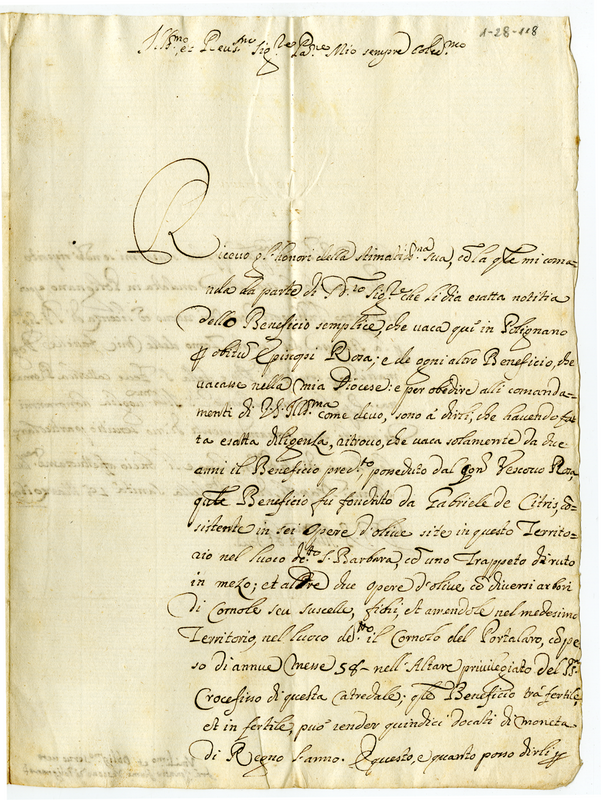 1-28-118
Ill.mo et Reu.mo Sig.re Pad.ne Mio sempre Colẽ.mo
Riceuo gl'honori della stimatiss.ma sua, cõ la q̃le mi coman=
nda da parte di N.ro Sig.re che li dia esatta notitia
dello Beneficio semplice, che vaca qui in Polignano
ꝑ obitũ Episcopi Rora; e de ogni altro Beneficio, che
vacasse nella mia Diocese: e per obedire alli comanda=
menti di V.S. Ill.ma come deuo, sono à dirli, che hauendo fat
ta esatta diligenza, ritrouo, che vaca solamente da due
anni il Beneficio pred.to, posseduto dal qm̃ Vescouo Rora,
quale Beneficio fu fondato da Gabriele de Citris, cõ=
sistente in sei opere d'oliue site in questo Territo=
rio nel luoco d.to S. Barbara, cõ uno Trappeto diruto
in mezo; et altre due opere d'oliue, cõ diuersi arbori
di Cornole seu suscelle, fichi, et amendole nel medesimo
Territorio, nel luoco de.tto il Cornolo del Portalaro, cõ pe=
so di annue Messe 58- nell'Altare priuilegiato del SS.
Crocefisso di questa catredale; q̃le Beneficio tra fertile,
et in fertile, può render quindici docati di moneta
di Regno l'anno. Questo, e quanto posso dirli ꝑ